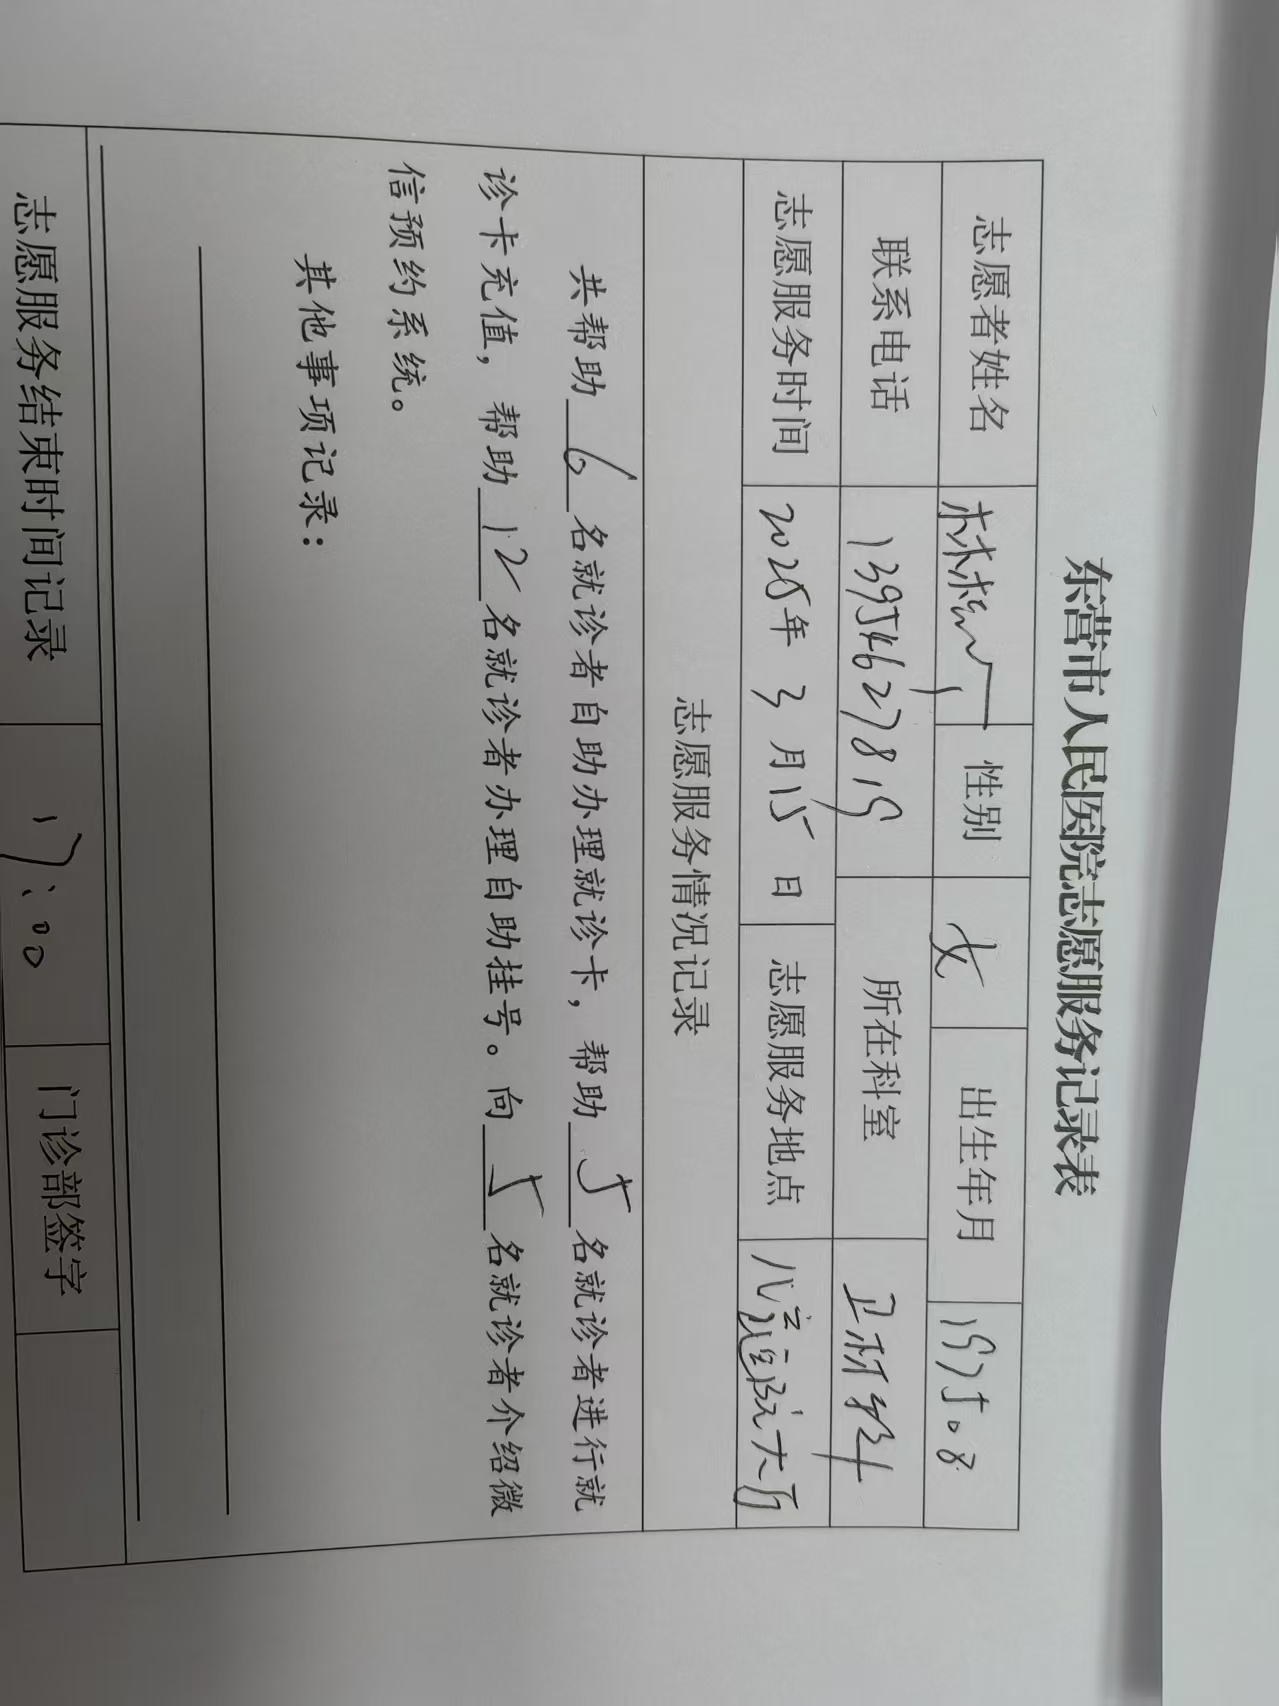 东营市人民医院志愿服务记录表
志愿者姓名 性别 女 出生年月 197508
联系电话 13954627819 所在科室 卫材科
志愿服务时间 2025年 3 月 15 日 志愿服务地点 大厅
志愿服务情况记录
共帮助 6 名就诊者自助办理就诊卡，帮助 5 名就诊者进行就
诊卡充值，帮助 12 名就诊者办理自助挂号。向 5 名就诊者介绍微
信预约系统。
其他事项记录：
志愿服务结束时间记录 17:00 门诊部签字